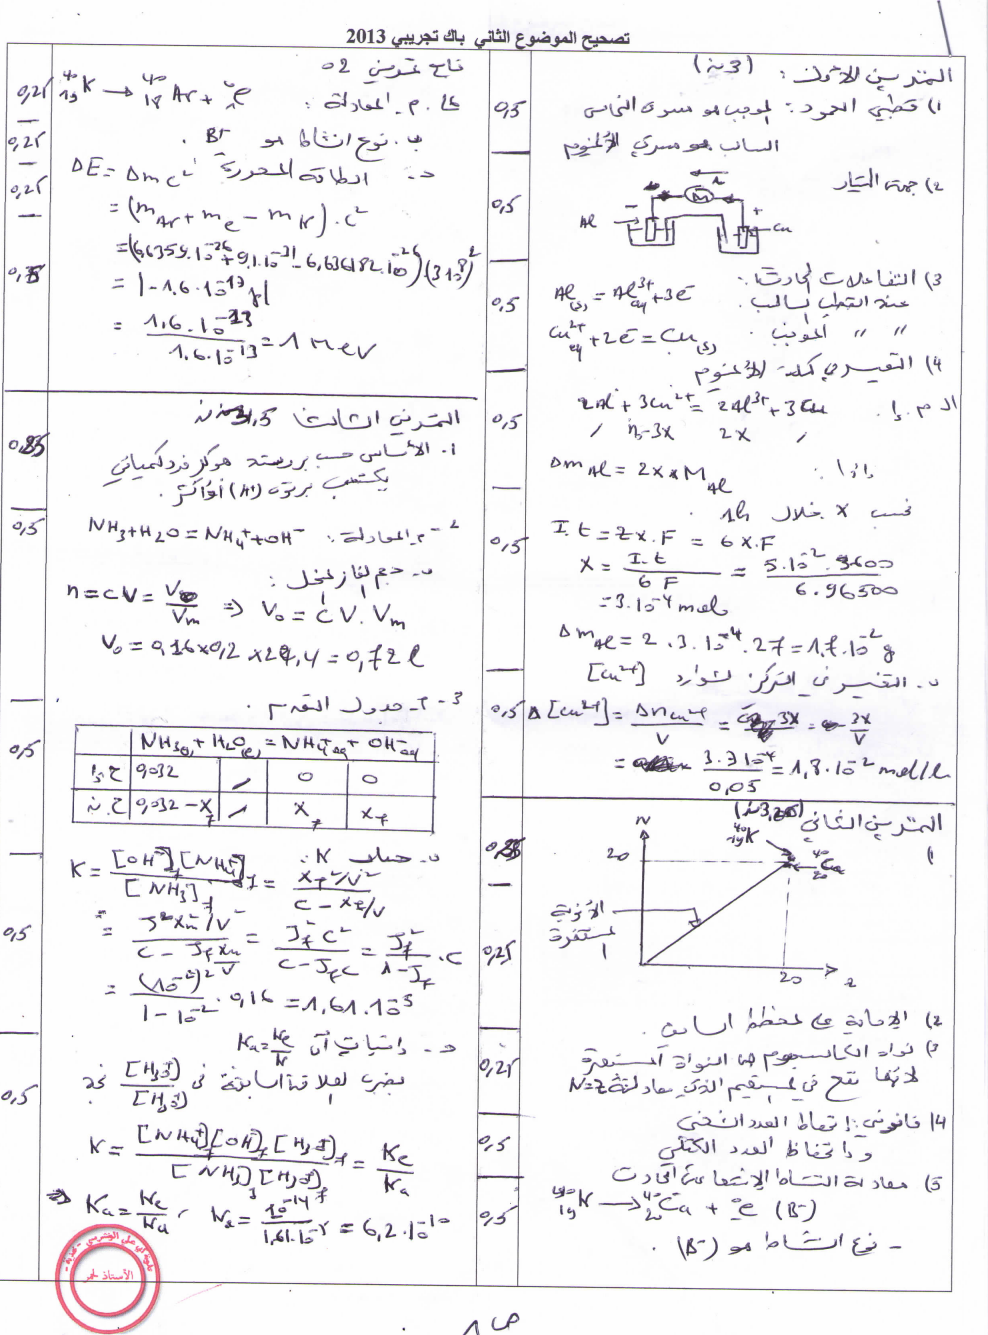 تصحيح الموضوع الثاني باك تجريبي 2013
التمرين الأول : (3ن)
0,5
1) قطبي العمود : الموجب هو مسرى النحاس
السالب هو مسرى الألمنيوم
0,5
2) جهة التيار
Al
Cu
- M +
0,5
3) التفاعلات الحادثة :
عند القطب السالب Al(s) = Al3+aq + 3e-
" " الموجب Cu2+aq + 2e- = Cu(s)
4) التغير في كتلة الألمنيوم
0,5
2Al + 3Cu2+ = 2Al3+ + 3Cu
/ n-3x 2x /
إذا : ΔmAl = 2x × MAl
نحسب x خلال 1h
0,5
I.t = Zx.F = 6x.F
x = I.t / 6F = 5.10-2.3600 / 6.96500
= 3.10-4 mol
ΔmAl = 2.3.10-4.27 = 1,7.10-2 g
ب. التغير في التركيز لشوارد [Cu2+]
0,5
Δ[Cu2+] = ΔnCu2+ / V = 3x / V
= 3.3.10-4 / 0,05 = 1,8.10-2 mol/l
التمرين الثاني
1)
N
20
40 19 K
40 20 Ca
الأنوية المستقرة
20
Z
0,25
2) الإجابة على المخطط السابق .
0,25
3) نواة الكالسيوم هي النواة المستقرة
لأنها تقع في المستقيم الذي معادلته N=Z
4) قانوني : إنحفاظ العدد الشحني
0,5
و إنحفاظ العدد الكتلي
5) معادلة النشاط الإشعاعي الحادث
0,5
40 19 K → 40 20 Ca + 0 -1 e (B-)
- نوع النشاط هو (B-) .
تابع تمرين 02
0,25
م. المعادلة : 40 19 K → 40 18 Ar + 0 1 e
0,25
ب. نوع النشاط هو B+ .
0,25
ج- الطاقة المحررة ΔE = Δm c2
= (mAr + me - mK).c2
= (6,6359.10-26 + 9,1.10-31 - 6,636182.10-26).(3.108)2
= |-1.6.10-13 J|
= 1,6.10-13 / 1.6.10-13 = 1 MeV
التمرين الثالث
1. الأساس حسب برونستد هو كل فرد كيميائي
يكتسب بروتون (H+) أو أكثر .
0,5
2- م. المعادلة : NH3 + H2O = NH4+ + OH-
ب. حجم الغاز المنحل :
n = CV = V0 / Vm ⇒ V0 = CV.Vm
V0 = 0,16 × 0,2 × 22,4 = 0,72 l
3- جدول التقدم .
0,5
NH3 + H2O(l) = NH4+aq + OH-aq
ح.إ 0,032 / 0 0
ح.ن 0,032 - xf / xf xf
ب. حساب K :
K = [OH-]f [NH4+]f / [NH3]f = xf2/V2 / C - xf/V
0,5
= = Jf2 C2 / C - Jf C = Jf2 / 1-Jf . C
= (10-2)2 / 1-10-2 . 0,16 = 1,61.10-5
ج- إثبات أن Ka = Ke / K
0,5
بضرب العلاقة السابقة في [H3O+] / [H3O+] نجد
K = [NH4+]f [OH-]f [H3O+]f / [NH3] [H3O+] = Ke / Ka
⇒ Ka = Ke / K , Ka = 10-14 / 1,61.10-5 = 6,2.10-10
الأستاذ لحمر
ص 1